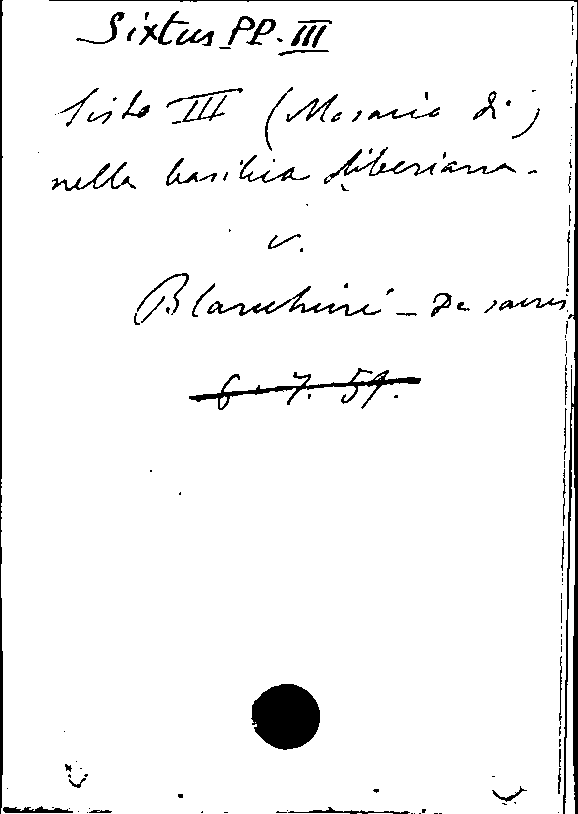 Sixtus PP. III
Sisto III (Mosaico di)
nella basilica liberiana.
v.
Blanchini - De sacris
6. 7. 59.